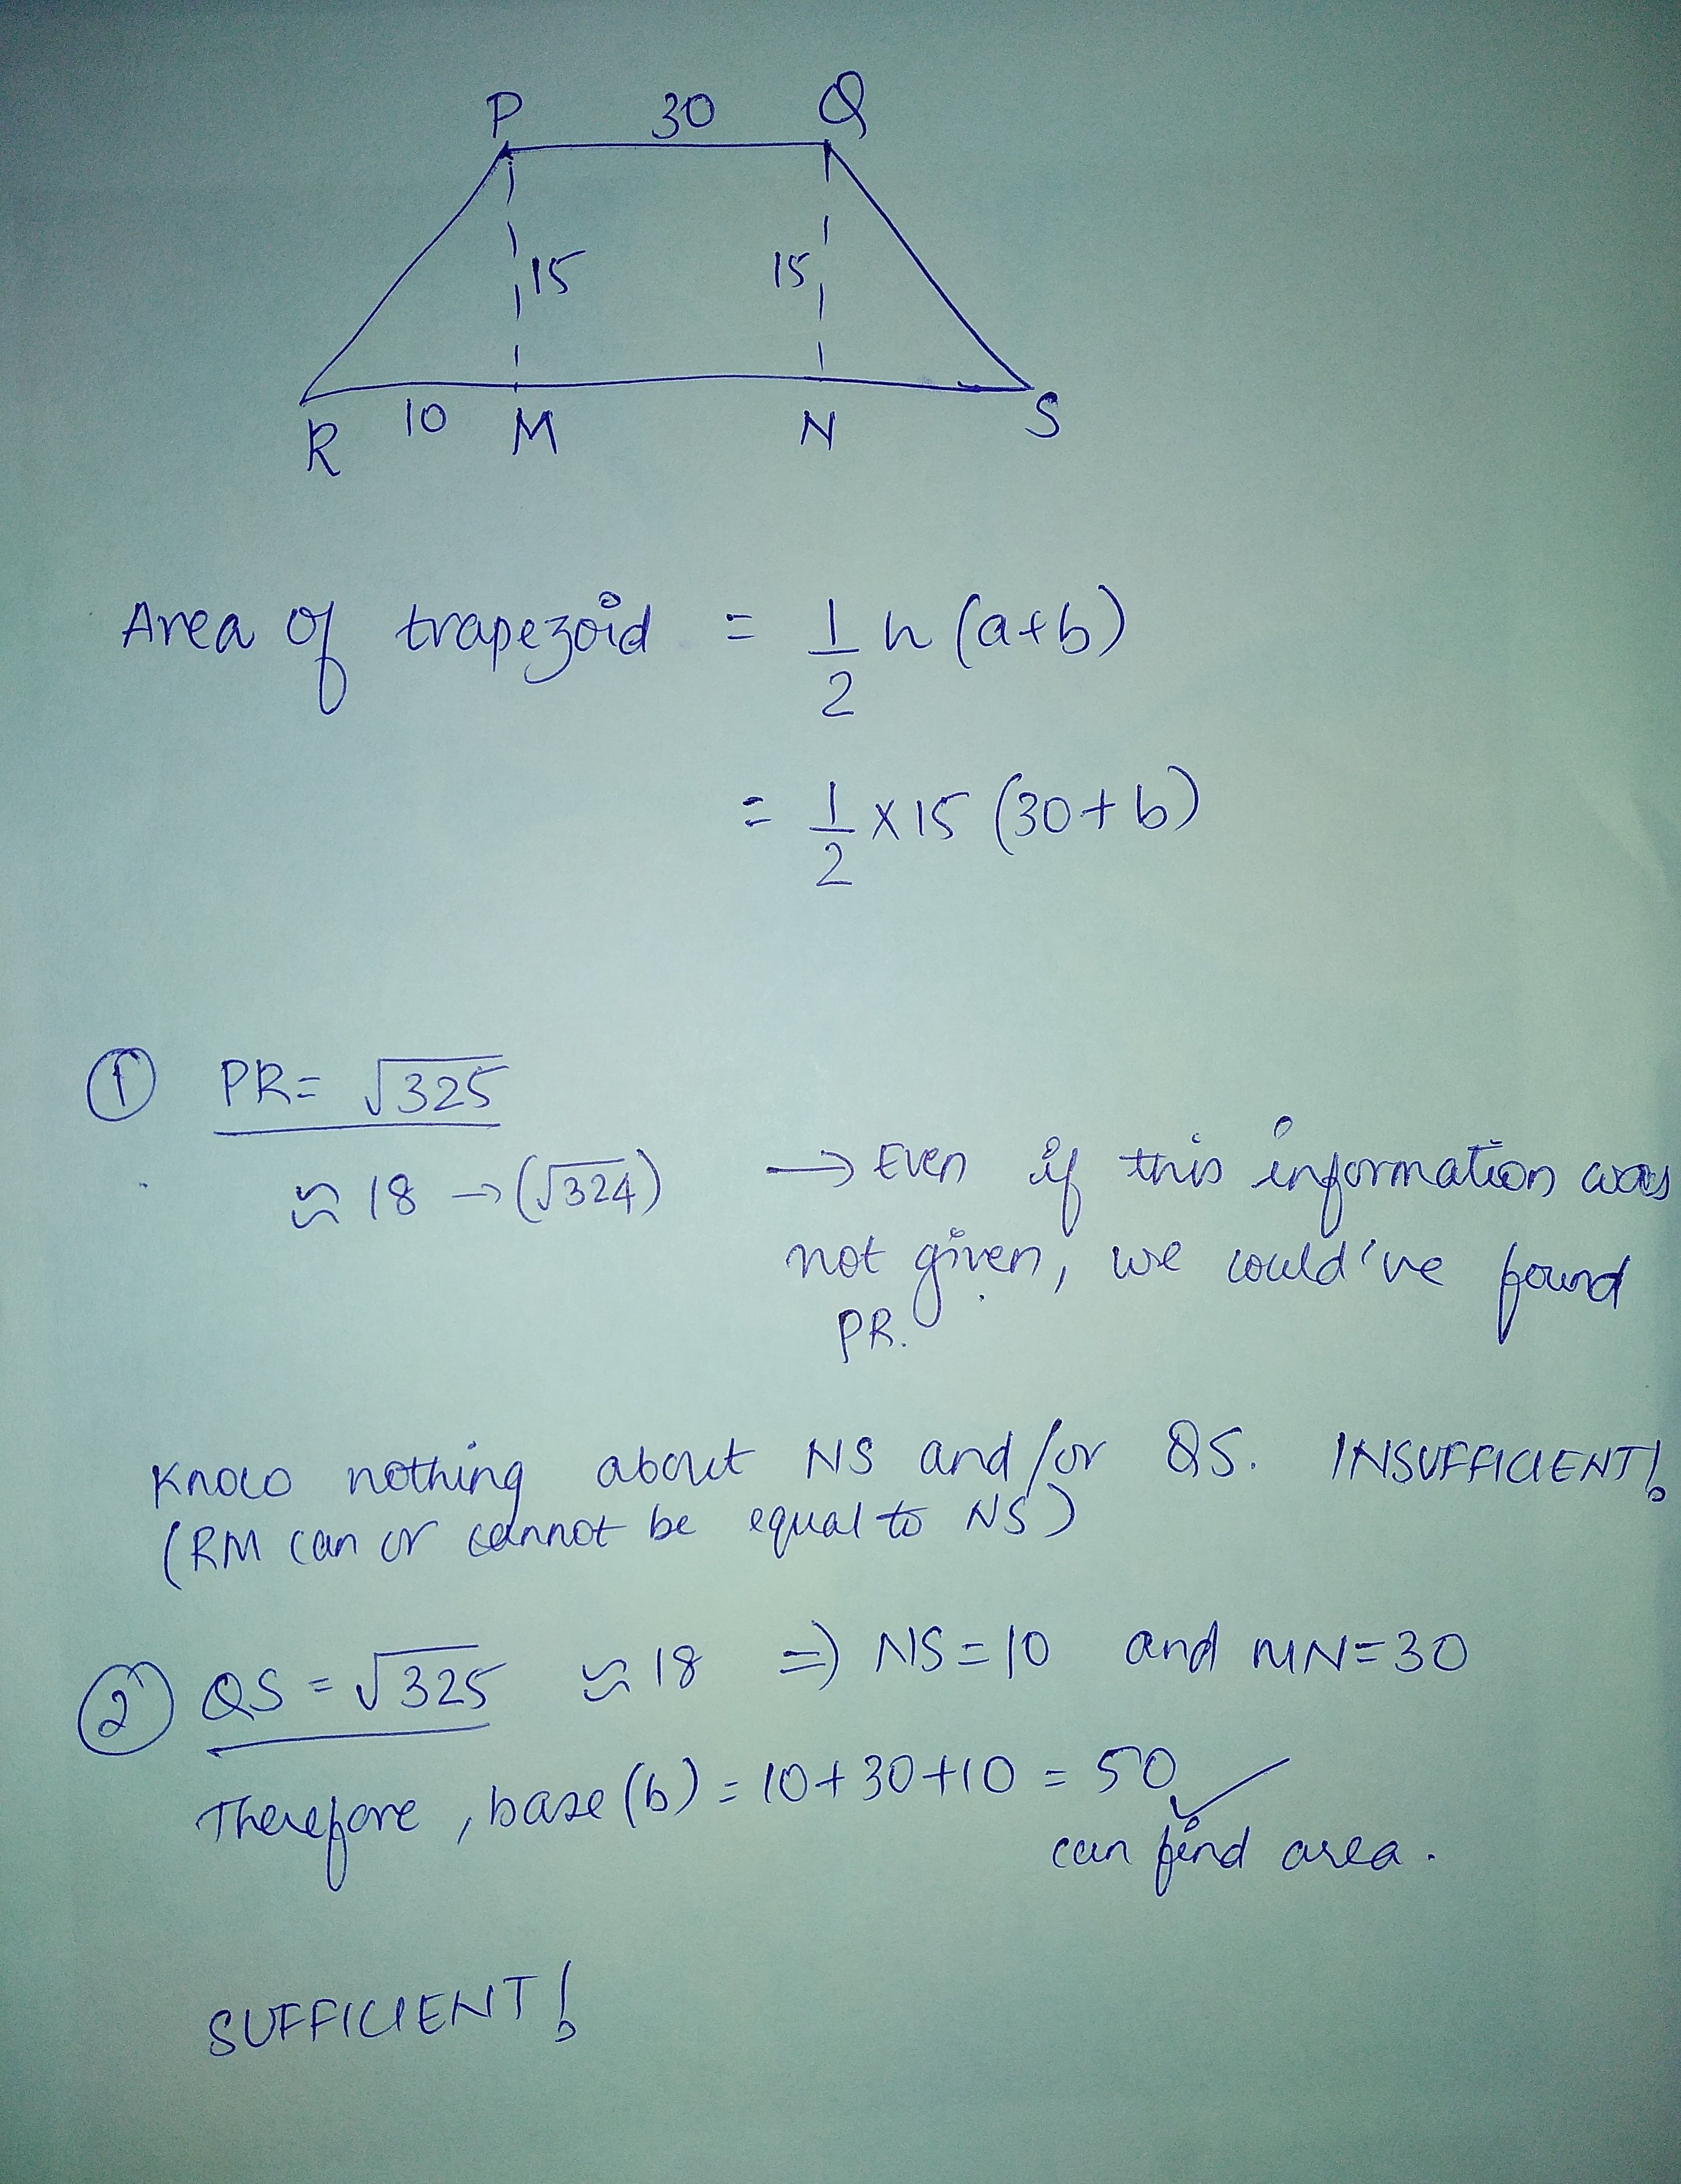 P 30 Q
15 15
R 10 M N S
Area of trapezoid = 1/2 h (a+b)
= 1/2 x 15 (30+b)
① PR = √325
≈ 18 → (√324) → Even if this information was
not given, we could've found
PR.
Know nothing about NS and/or QS. INSUFFICIENT!
(RM can or cannot be equal to NS)
② QS = √325 ≈ 18 ⇒ NS = 10 and MN = 30
Therefore, base (b) = 10+30+10 = 50 ✓
can find area.
SUFFICIENT!